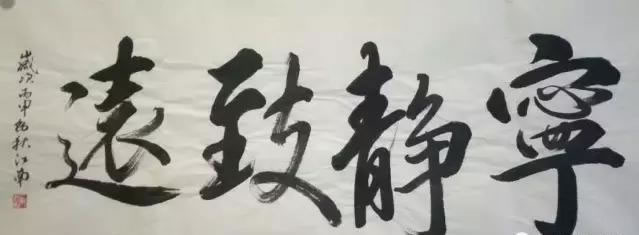 寧靜致遠
歲次丙申初秋江南